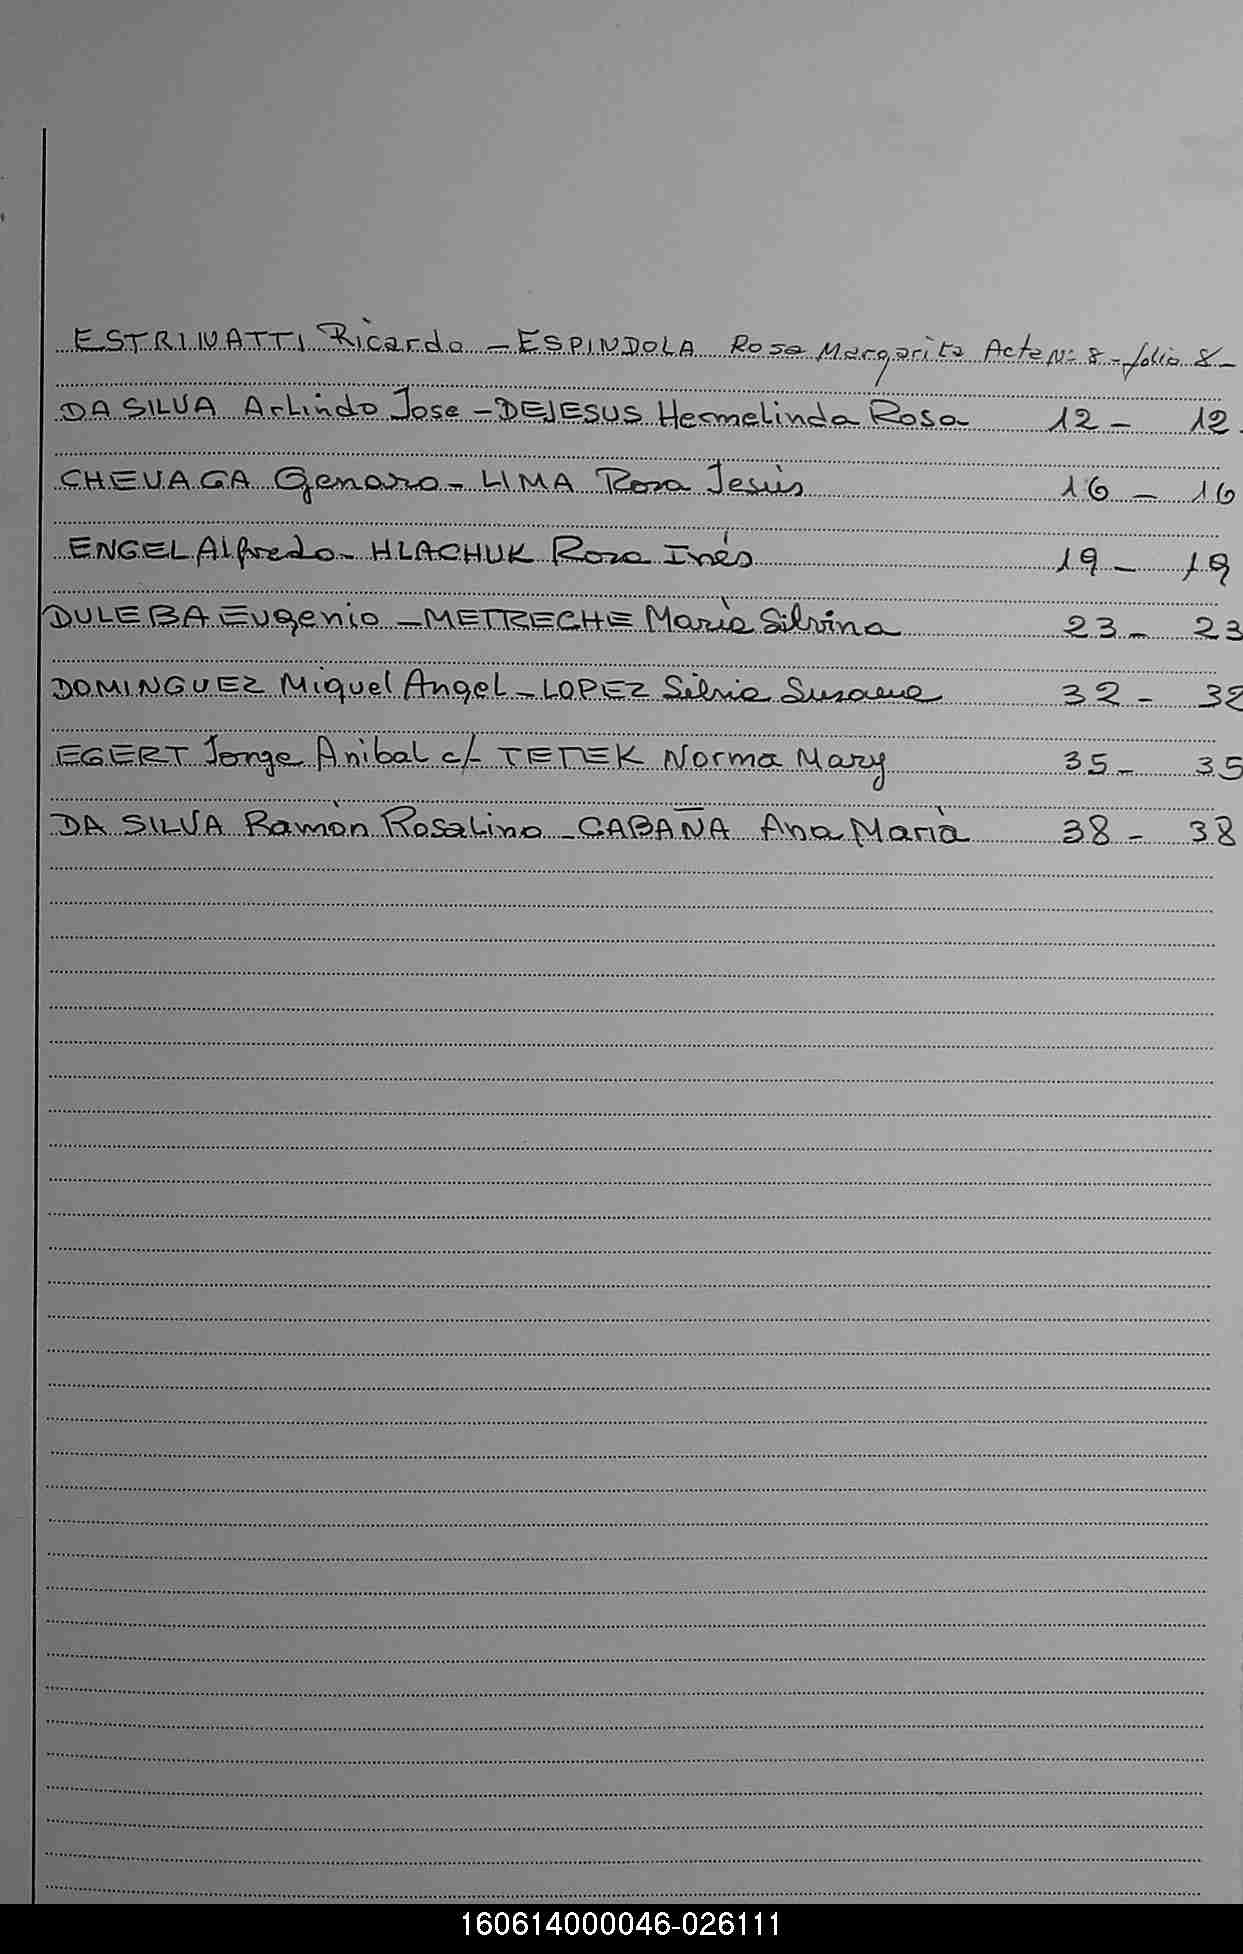 ESTRIVATTI Ricardo - ESPINDOLA Rosa Margarita Acta Nº 8 - folio 8 -
DA SILVA Arlindo Jose - DEJESUS Hermelinda Rosa 12 - 12.
CHEVAGA Genaro - LIMA Rosa Jesús 16 - 16
ENGEL Alfredo - HLACHUK Rosa Inés 19 - 19
DULEBA Eugenio - METRECHE María Silvina 23 - 23
DOMINGUEZ Miguel Angel - LOPEZ Silvia Susana 32 - 32
EGERT Jorge Anibal c/ TETEK Norma Mary 35 - 35
DA SILVA Ramón Rosalino - CABAÑA Ana María 38 - 38
160614000046-026111